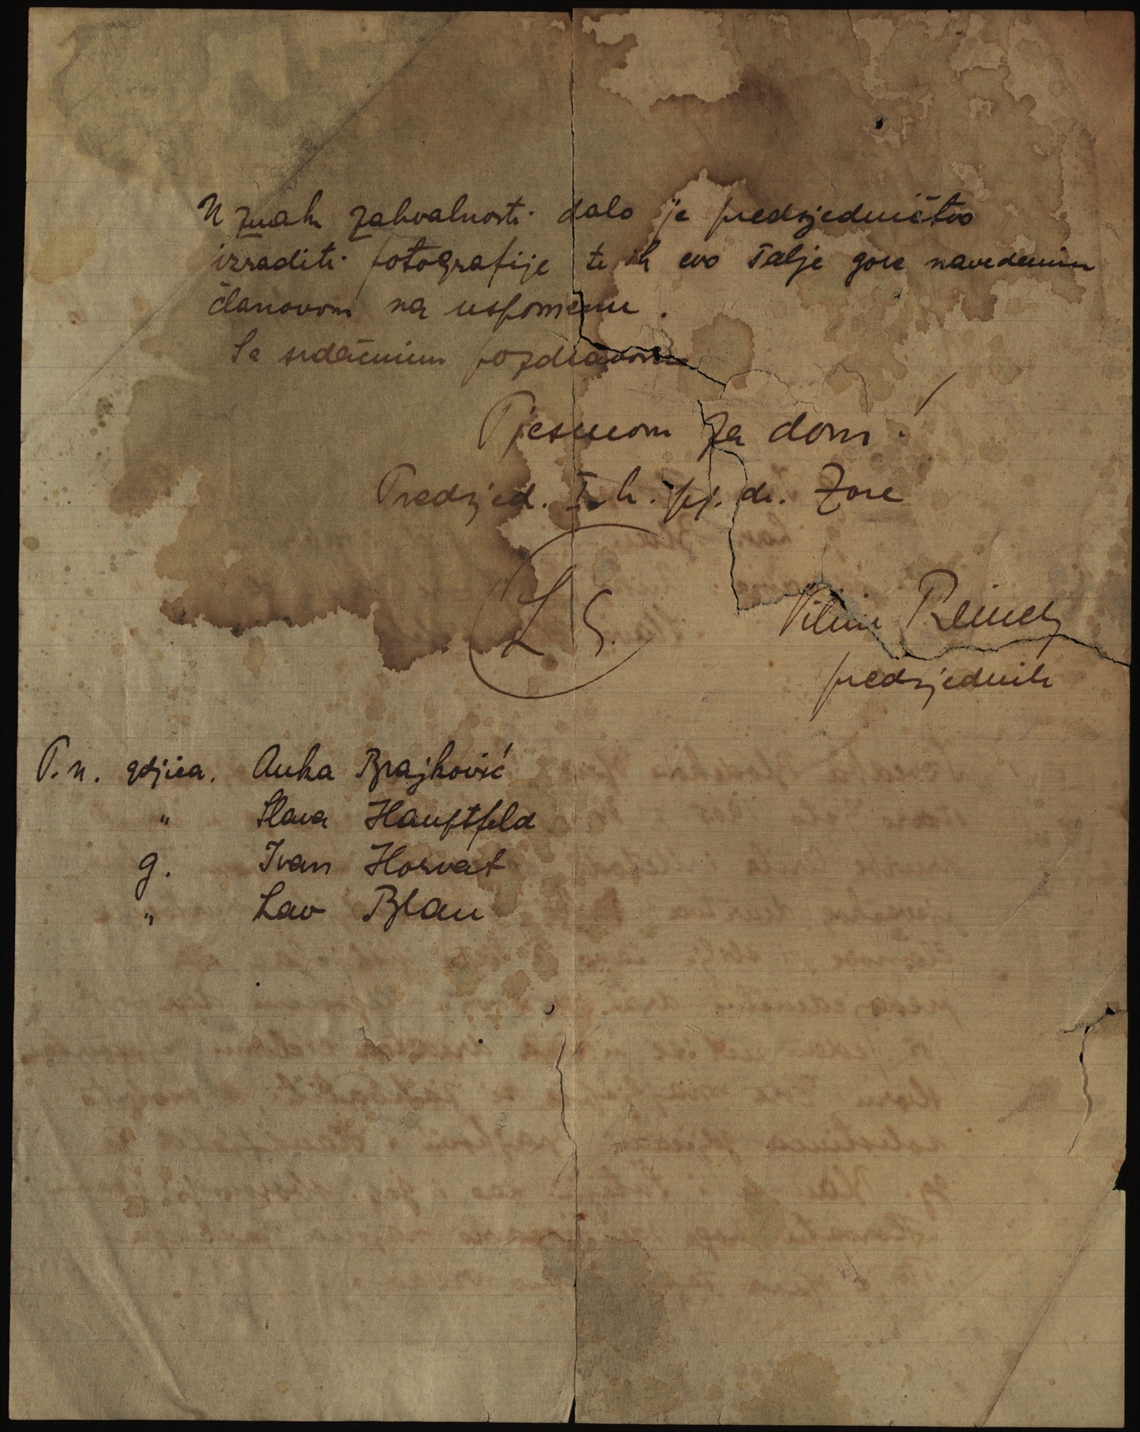 U znak zahvalnosti dalo je predsjedništvo
izraditi fotografije te ih evo šalje gore navedenim
članovom na uspomenu.
Sa srdačnim pozdravom
Pjesmom za dom!
Predsjed. I. h. pj. dr. Zore
L S.
Vilim
predsjednik
P. n. gdjica. Anka Brajković
" Slava Hauptfeld
g. Ivan Horvat
" Lav Blau